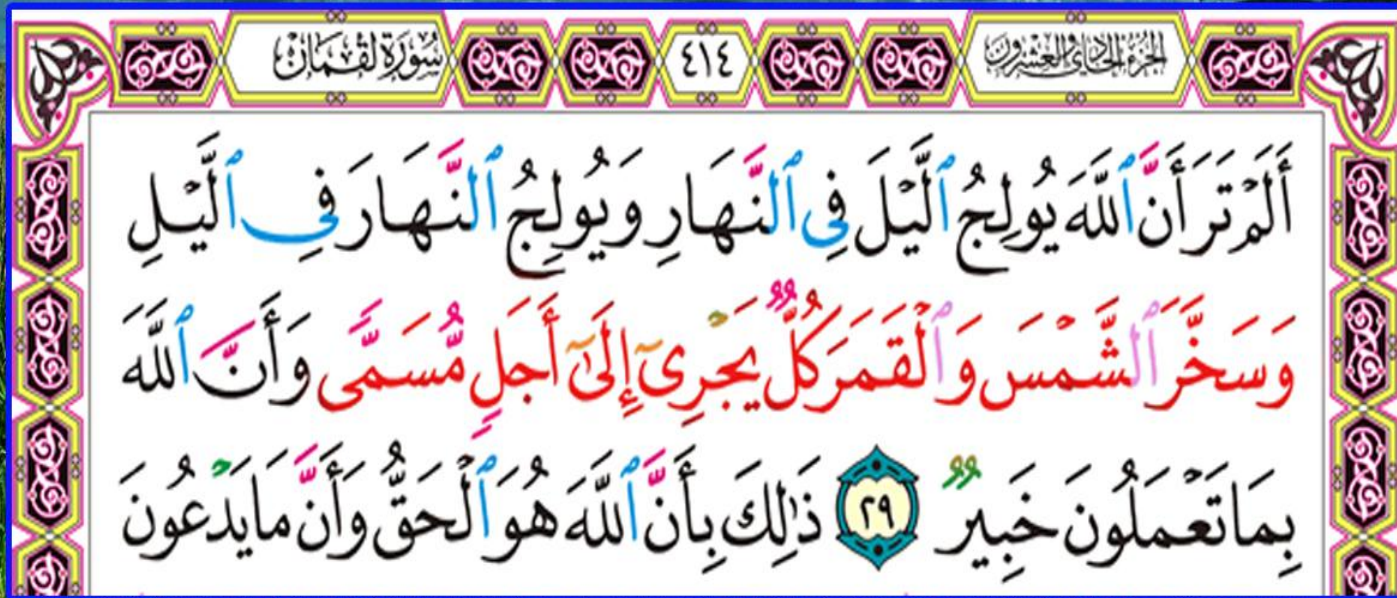 الجزء الحادي والعشرون ٤١٤ سُورَةُ لُقْمَانَ
أَلَمْ تَرَ أَنَّ ٱللَّهَ يُولِجُ ٱلَّيْلَ فِى ٱلنَّهَارِ وَيُولِجُ ٱلنَّهَارَ فِى ٱلَّيْلِ
وَسَخَّرَ ٱلشَّمْسَ وَٱلْقَمَرَ كُلٌّ يَجْرِىٓ إِلَىٰٓ أَجَلٍ مُّسَمًّى وَأَنَّ ٱللَّهَ
بِمَا تَعْمَلُونَ خَبِيرٌ ٢٩ ذَٰلِكَ بِأَنَّ ٱللَّهَ هُوَ ٱلْحَقُّ وَأَنَّ مَا يَدْعُونَ